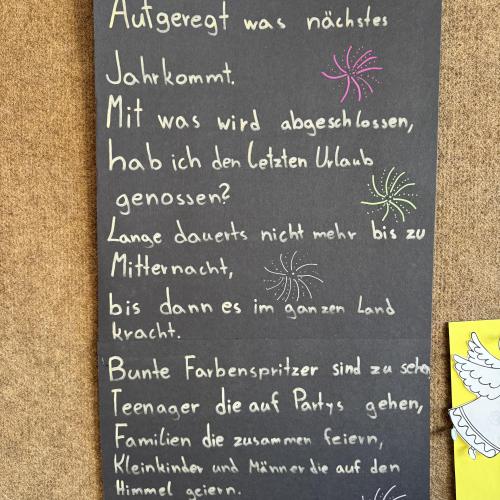 Aufgeregt was nächstes
Jahr kommt.
Mit was wird abgeschlossen,
hab ich den letzten Urlaub
genossen?
Lange dauerts nicht mehr bis zu
Mitternacht,
bis dann es im ganzen Land
kracht.
Bunte Farbenspritzer sind zu sehen
Teenager die auf Partys gehen,
Familien die zusammen feiern,
Kleinkinder und Männer die auf den
Himmel geiern.